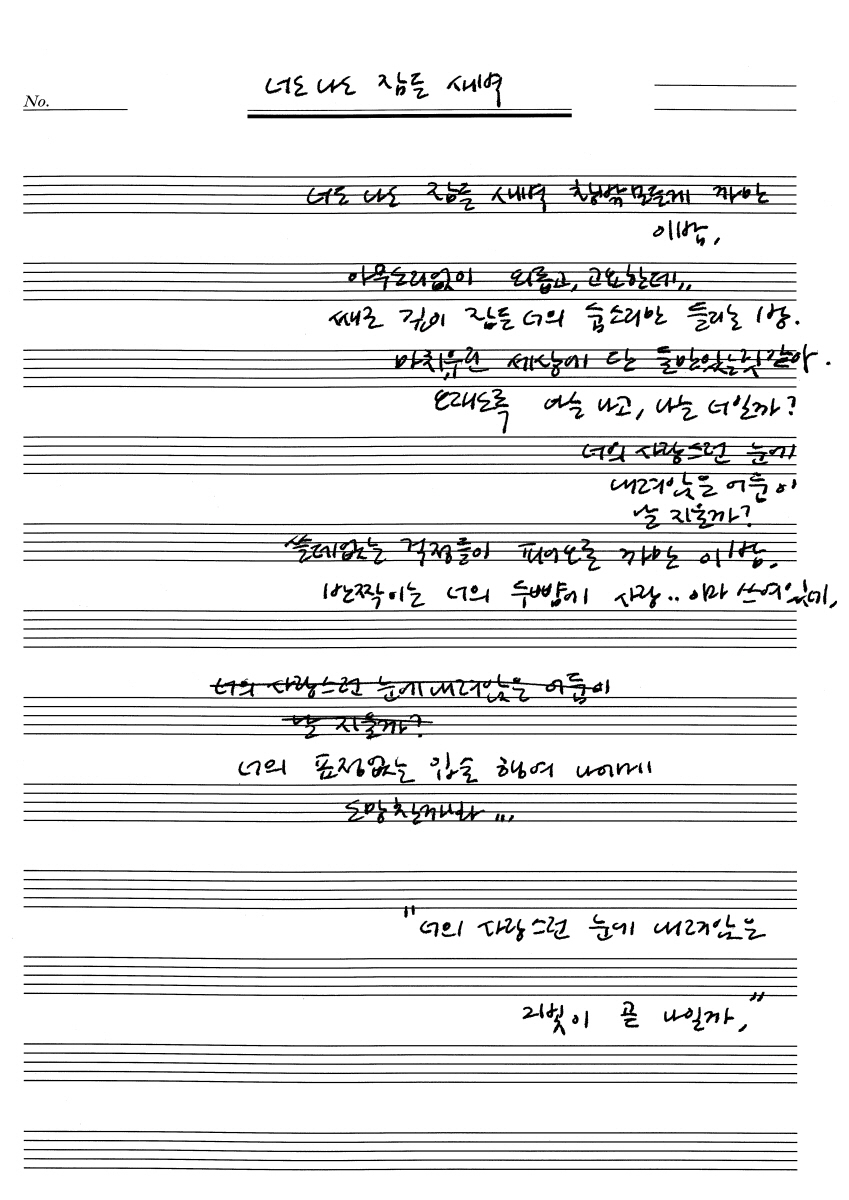 너도 나도 잠들 새벽
No.
너도 나도 잠들 새벽 까만
이밤,
아무소리없이 외롭고, 고요한데,,
새로 깊이 잠든 너의 숨소리만 들리는 밤.
마치 세상에 단 둘만있는것같아.
오래도록 너는 나고, 나는 너일까?
너의 사랑스런 눈에
내려앉은 어둠이
날 지울까?
쓸데없는 걱정들이 피어오른 까만 이밤,
반짝이는 너의 두뺨에 사랑.. 이라 쓰여있네,
너의 사랑스런 눈에 내려앉은 어둠이
날 지울까?
너의 표정없는 입술 행여 나에게
도망칠까봐 ...
"너의 사랑스런 눈에 내려앉은
달빛이 곧 나일까,"